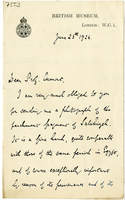 7552
BRITISH MUSEUM,
LONDON: W.C.1.
June 25th 1926.
Dear Prof.
I am very much obliged to you
for sending me a photograph of the
parchment fragment of
It is a fine hand, quite comparable
with those of the same period in Egypt,
and of course exceptionally important
by reason of its provenance and of the